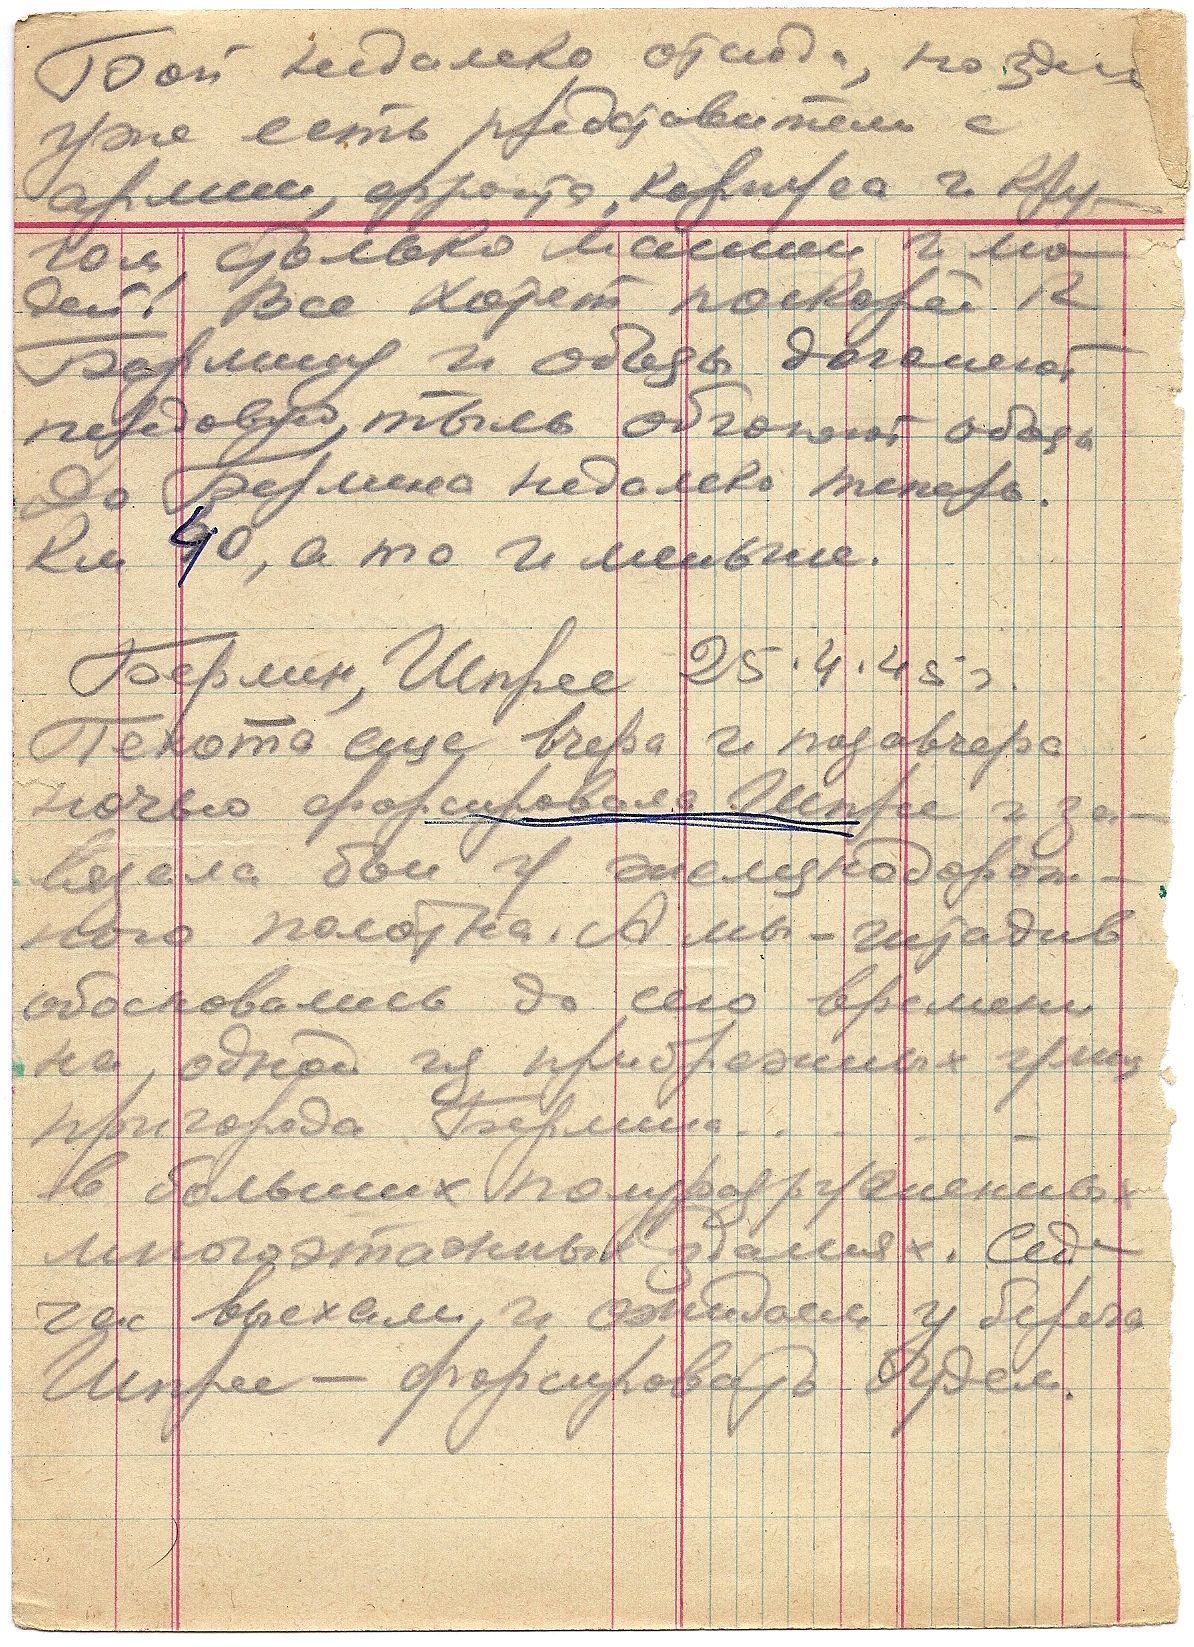 Бой недалеко отсюда, но здесь
уже есть представители с
армии, фронта, корпуса и кру-
гом столько машин и лю-
дей! Все хотят поскорей к
Берлину и обозы догоняют
передовую, тылы обгоняют обозы
До Берлина недалеко теперь.
Км 40, а то и меньше.
Берлин, Шпрее 25.4.45 г.
Пехота еще вчера и позавчера
ночью форсировала Шпрее и за-
вязала бои у железнодорож-
ного полотна. А мы - штадив
обосновались до сего времени
на одной из прибрежных улиц
пригорода Берлина . . . .
в больших полуразрушенных
многоэтажных зданиях. Сей-
час выехали и ожидаем у берега
Шпрее — форсировать будем.